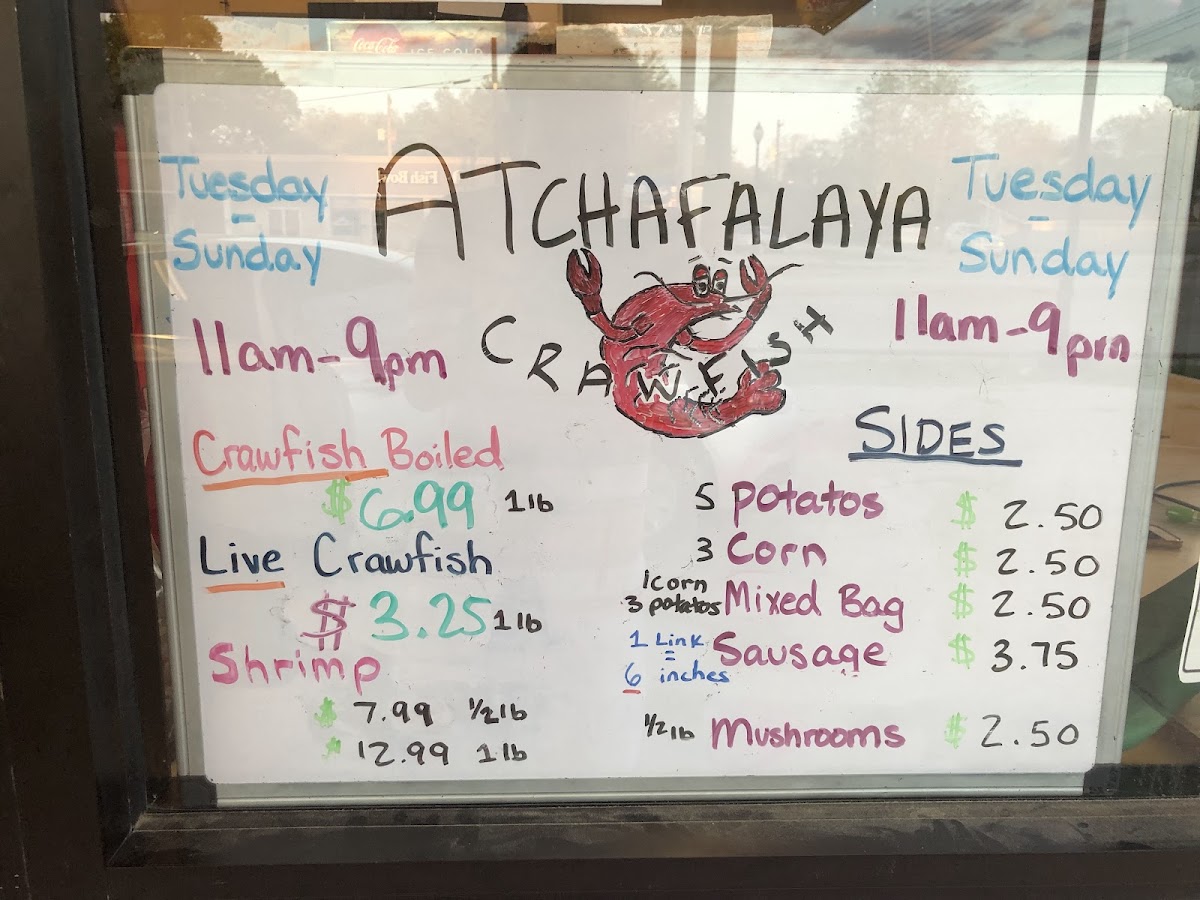 Coca-Cola ICE COLD
ATCHAFALAYA
CRAWFISH
Tuesday
-
Sunday
11am-9pm
Tuesday
-
Sunday
11am-9pm
Crawfish Boiled
$6.99 1lb
Live Crawfish
$3.25 1lb
Shrimp
$7.99 1/2lb
$12.99 1lb
SIDES
5 Potatos $2.50
3 Corn $2.50
1corn
3 potatos Mixed Bag $2.50
1 Link
=
6 inches Sausage $3.75
1/2lb Mushrooms $2.50